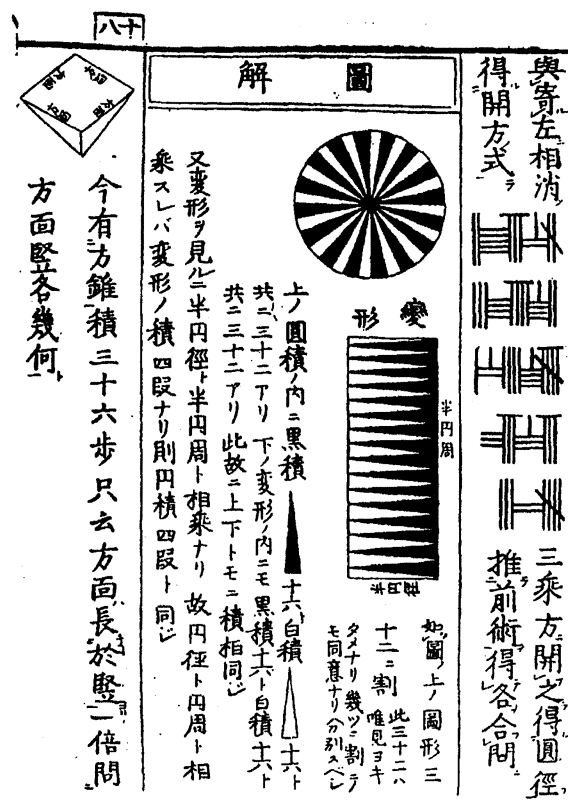 與寄左相消
得開方式
三乘方開之得圓徑
推前術得各合問
圖解
變形
半円周
如圖上ノ圓形三
十二ニ割 此三十二ハ
唯見ヨキ
タメナリ幾ツニ割テ
モ同意ナリ分別スベシ
上ノ圓積ノ内ニ黒積 十六ト白積 十六ト
共ニ三十二アリ 下ノ変形ノ内ニモ黒積十六ト白積十六ト
共ニ三十二アリ 此故ニ上下トモニ積相同ジ
又変形ヲ見ルニ半円徑ト半円周ト相乗ナリ 故円径ト円周ト相
乘スレバ変形ノ積四段ナリ則円積四段ト同ジ
今有方錐積三十六歩只云方面長於竪一倍問
方面竪各幾何
十八